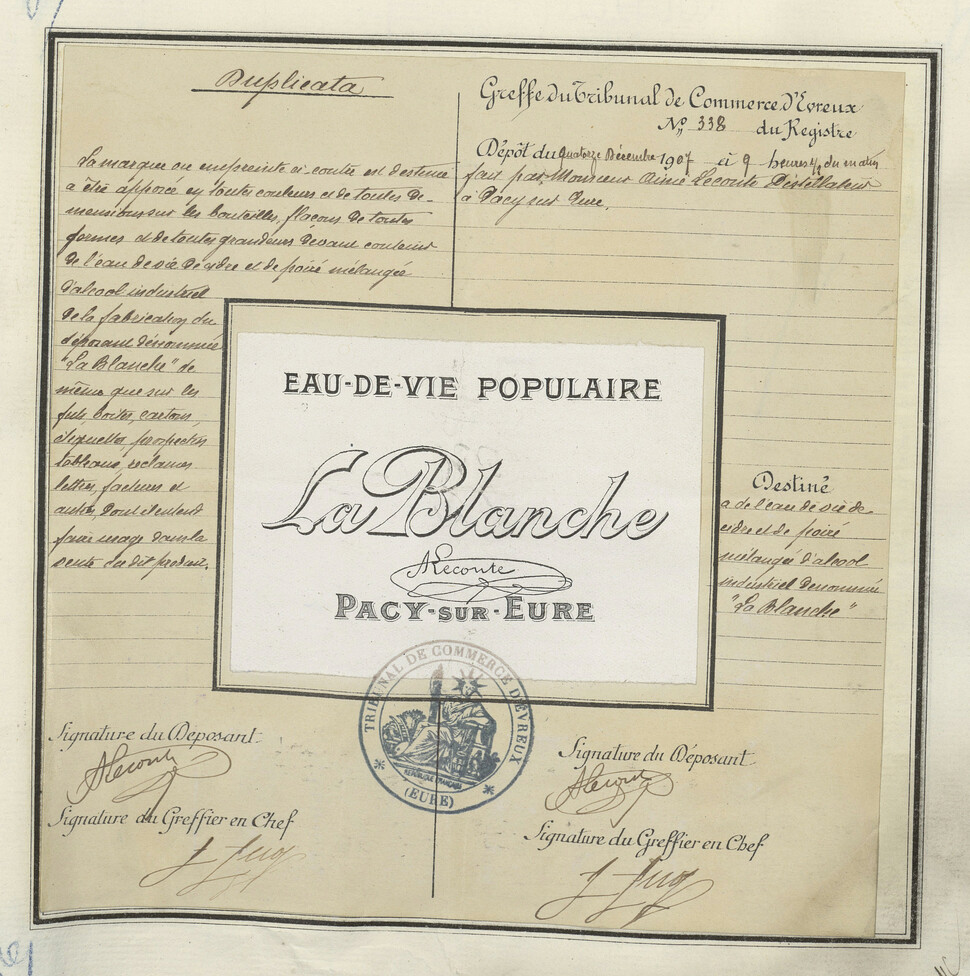 Duplicata
La marque ou empreinte ci-contre est destinée
à être apposée en toutes couleurs et de toutes di-
mensions sur les bouteilles, flacons de toutes
formes et de toutes grandeurs devant contenir
de l'eau de vie de cidre et de poiré mélangée
d'alcool industriel
de la fabrication du
déposant dénommée
"La Blanche" de
même que sur les
fûts, boites, cartons,
étiquettes, prospectus
tableaux, réclames
lettres, factures et
autres, dont il entend
faire usage dans la
vente du dit produit.
Greffe du Tribunal de Commerce d'Evreux
No 338 du Registre
Dépôt du quatorze Décembre 1907 à 9 heures 1/2 du matin
fait par Monsieur Aimé Lecomte Distillateur
à Pacy sur Eure.
EAU-DE-VIE POPULAIRE
La Blanche
ALecomte
PACY-SUR-EURE
Destiné
a de l'eau de vie de
cidre et de poiré
mélangée d'alcool
industriel dénommée
"La Blanche"
TRIBUNAL DE COMMERCE D'EVREUX
REPUBLIQUE FRANÇAISE
(EURE)
Signature du Déposant
ALecomte
Signature du Greffier en Chef
Signature du Déposant
ALecomte
Signature du Greffier en Chef